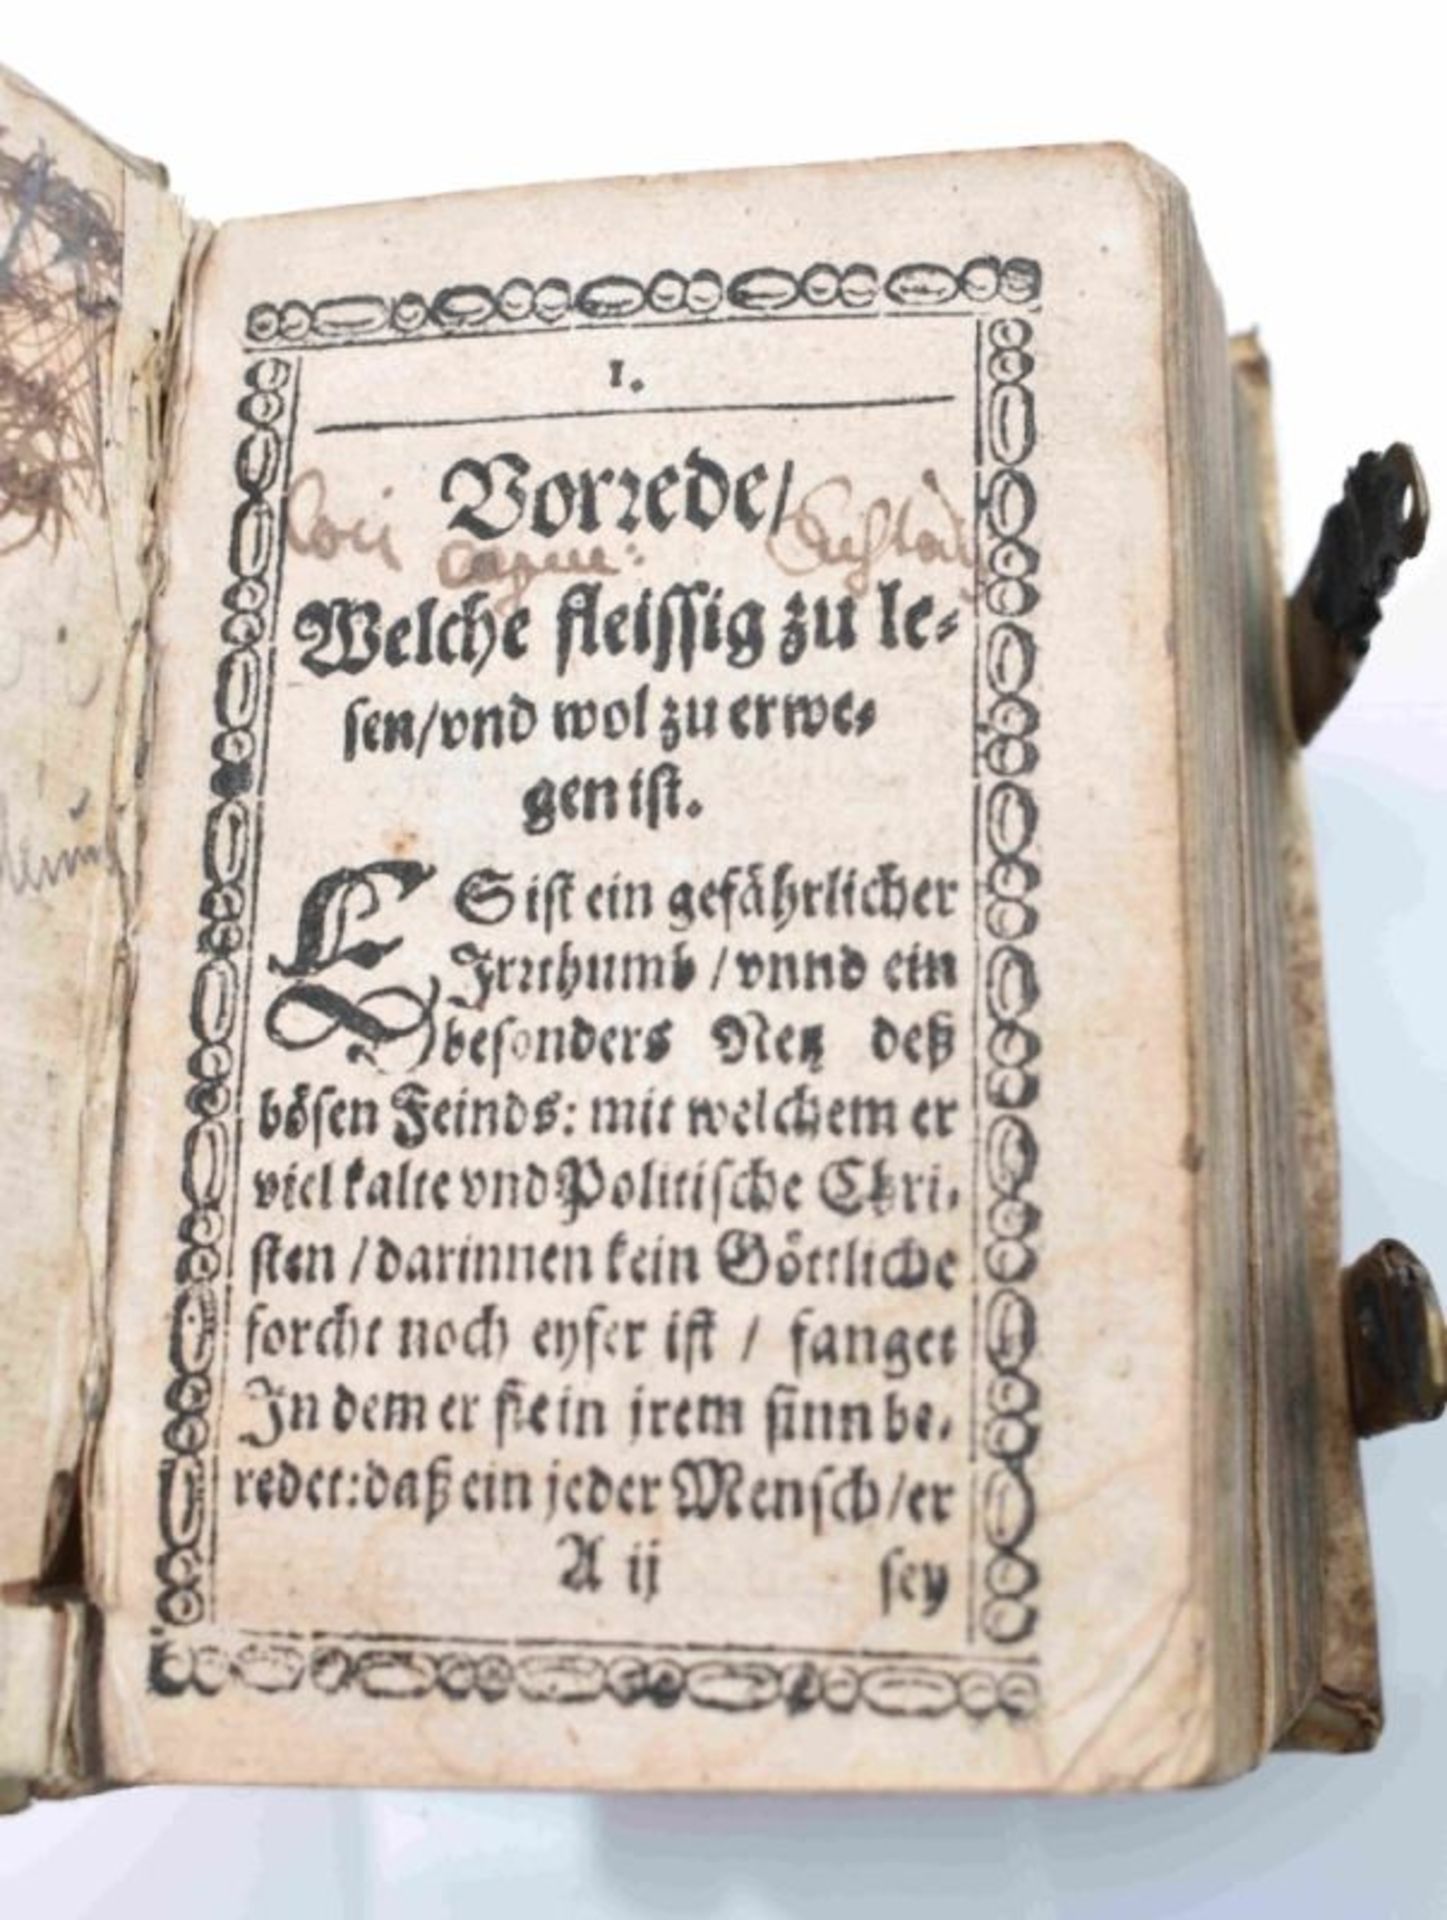 1.
Vorrede/
Welche fleissig zu le-
sen/vnd wol zu erwe-
gen ist.
ES ist ein gefährlicher
Irrthumb / vnnd ein
besonders Netz deß
bösen Feinds: mit welchem er
viel kalte vnd Politische Chri-
sten / darinnen kein Göttliche
forcht noch eyfer ist / fanget
In dem er sie in jrem sinn be-
redet: daß ein jeder Mensch/er
A ij sey